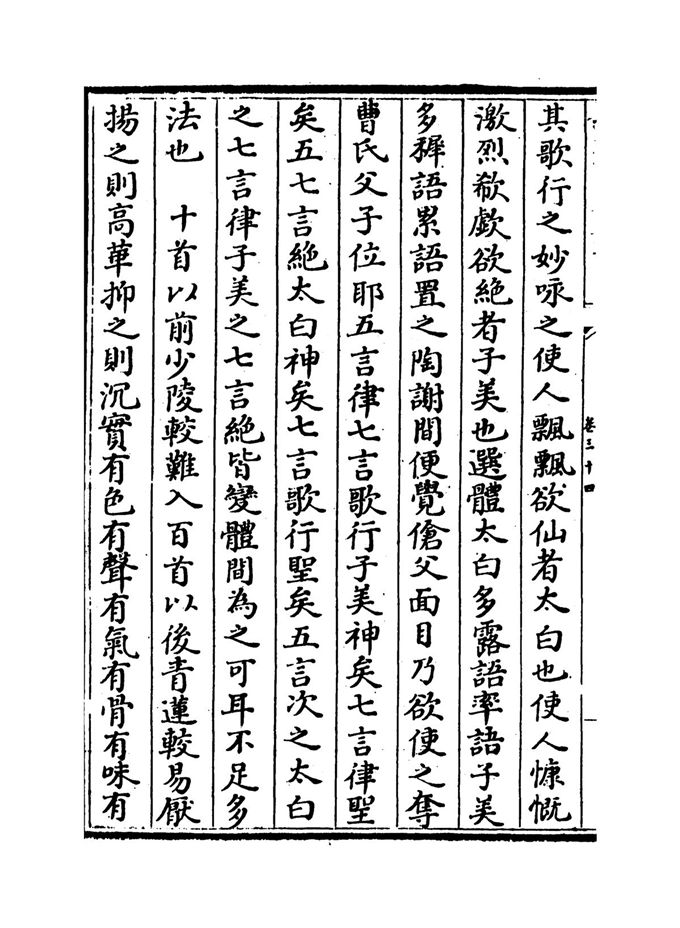 其歌行之妙咏之使人飄飄欲仙者太白也使人慷慨
激烈欷歔欲絶者子美也選體太白多露語率語子美
多穉語累語置之陶謝間便覺傖父面目乃欲使之奪
曹氏父子位耶五言律七言歌行子美神矣七言律聖
矣五七言絶太白神矣七言歌行聖矣五言次之太白
之七言律子美之七言絶皆變體間為之可耳不足多
法也　十首以前少陵較難入百首以後青蓮較易厭
揚之則高華抑之則沉實有色有聲有氣有骨有味有
卷三十四